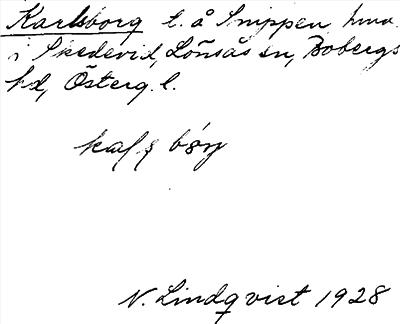 Karlsborg t. å Snippen, hmn
i Skedevid, Lönsås sn, Bobergs
hd, Österg. l.
N. Lindqvist 1928